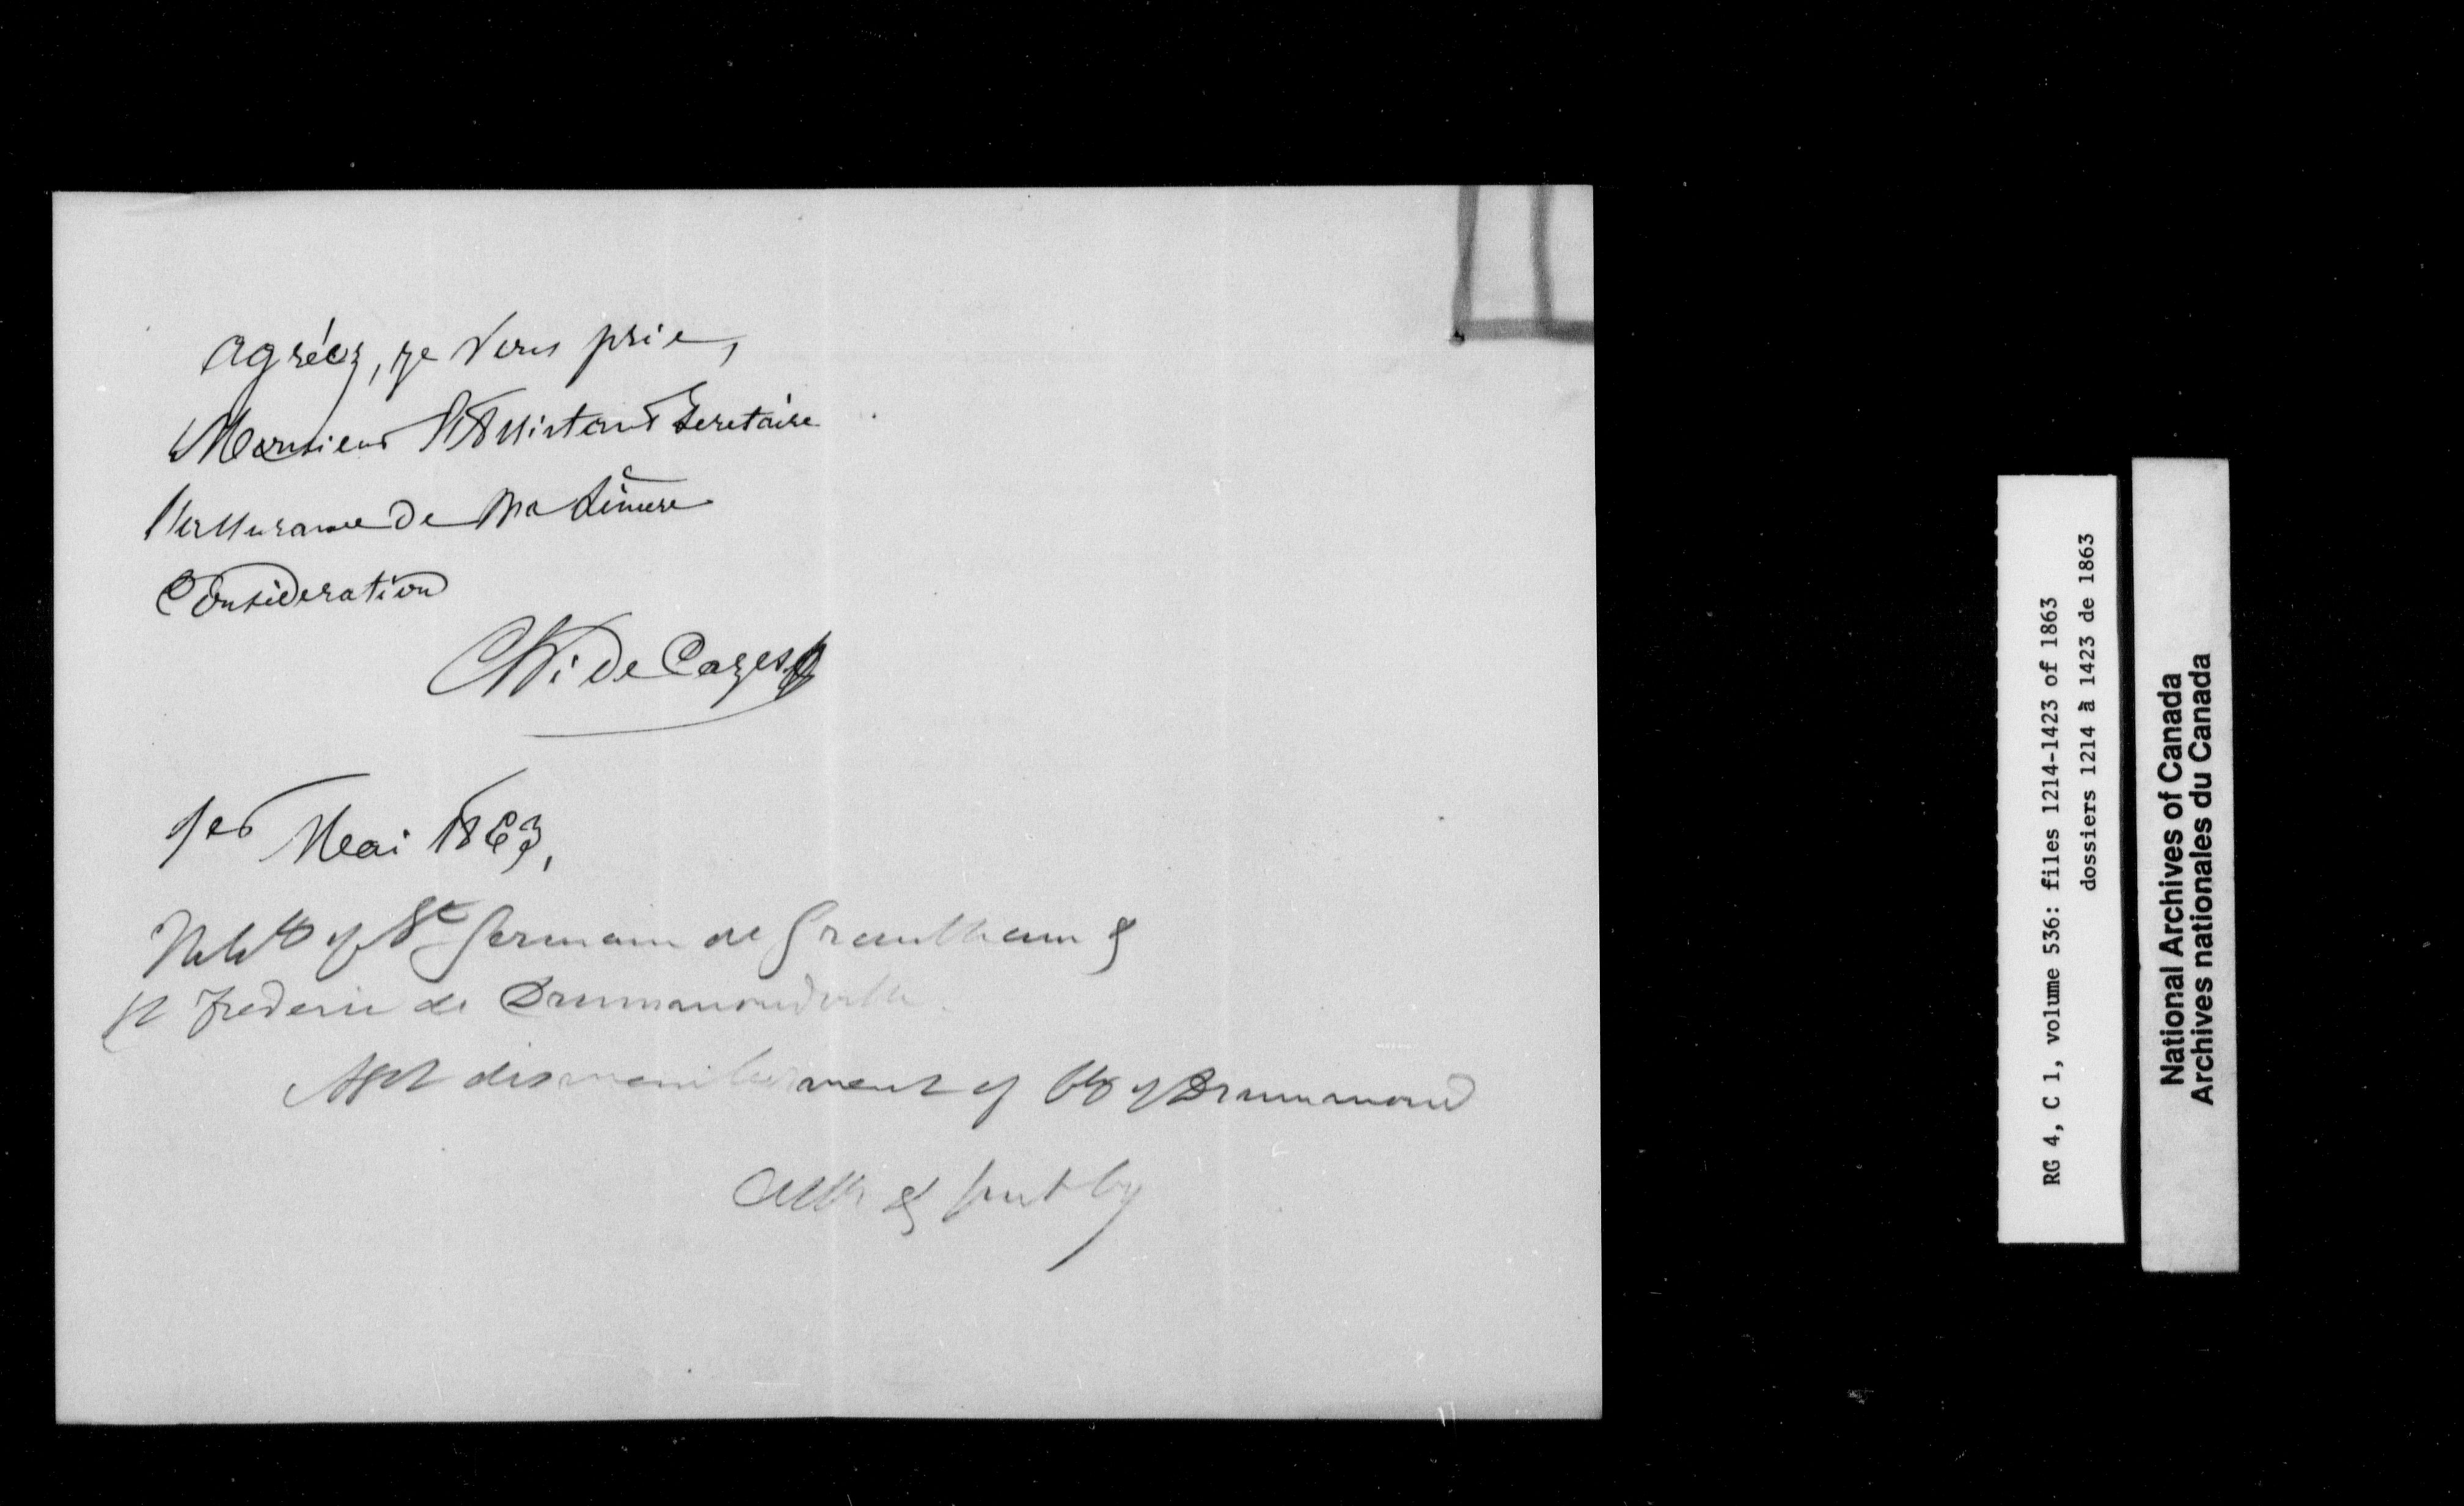 Agréez, je vous prie,
Monsieur l'Assistant Secretaire
l'assurance de ma sincère
Consideration
Ch: de Cazes
1er Mai 1863,
Inhbts of St Germain de Grantham &
St Frederic de Drummondville
Agst dismemberment of Co of Drummond
Ackn &
RG 4, C 1, volume 536: files 1214-1423 of 1863
dossiers 1214 à 1423 de 1863
National Archives of Canada
Archives nationales du Canada